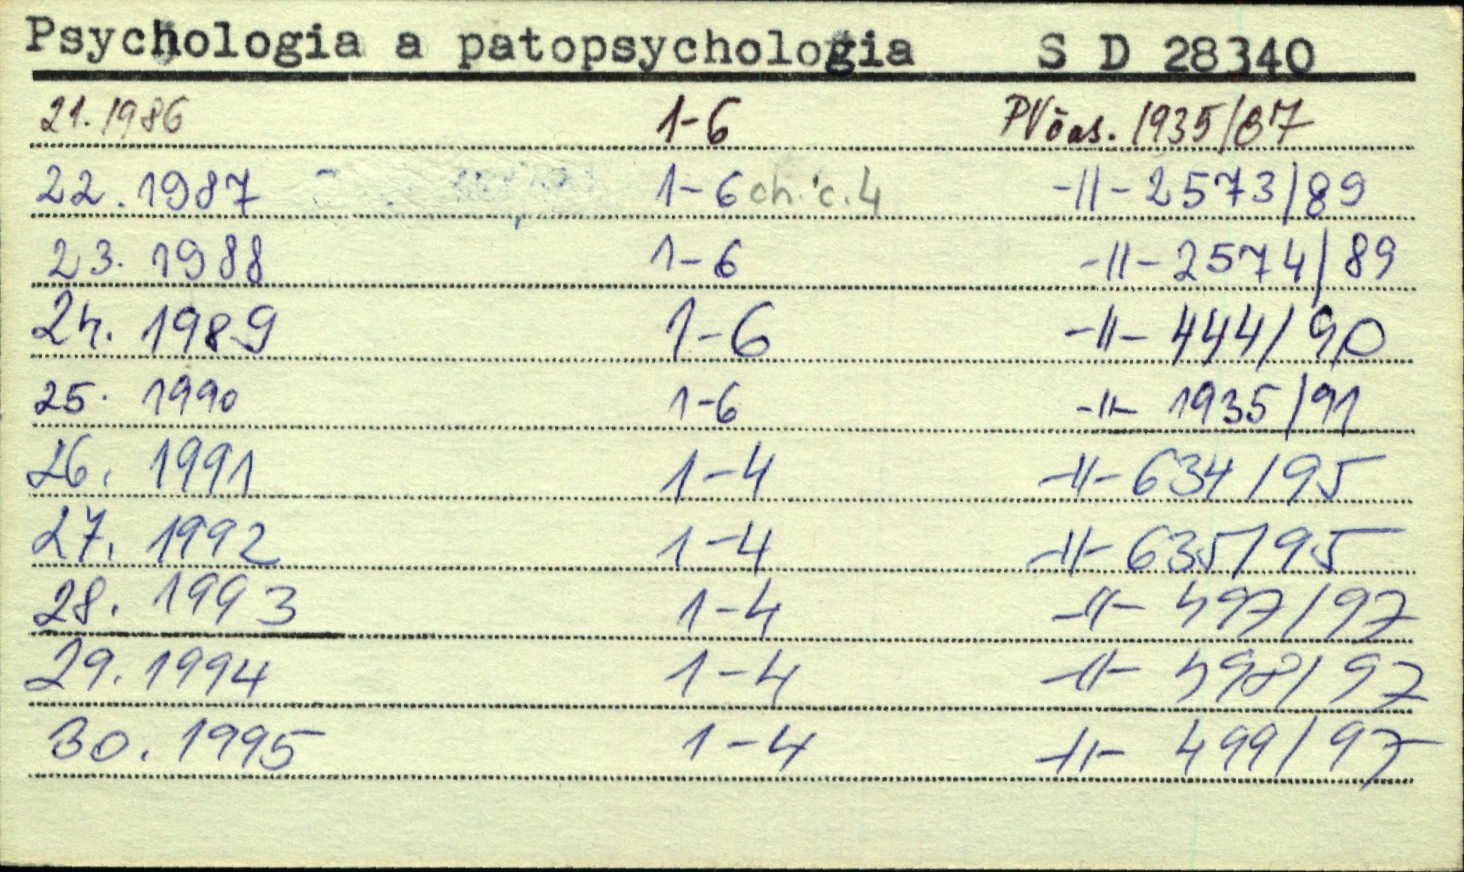 Psychologia a patopsychologia S D 28340
21. 1986 1-6 PVčas. 1935/87
22. 1987 1-6 ch. č. 4 -11- 2573/89
23. 1988 1-6 -11- 2574/89
24. 1989 1-6 -11- 444/90
25. 1990 1-6 -11- 1935/91
26. 1991 1-4 -11- 634/95
27. 1992 1-4 -11- 635/95
28. 1993 1-4 -11- 497/97
29. 1994 1-4 -11- 498/97
30. 1995 1-4 -11- 499/97